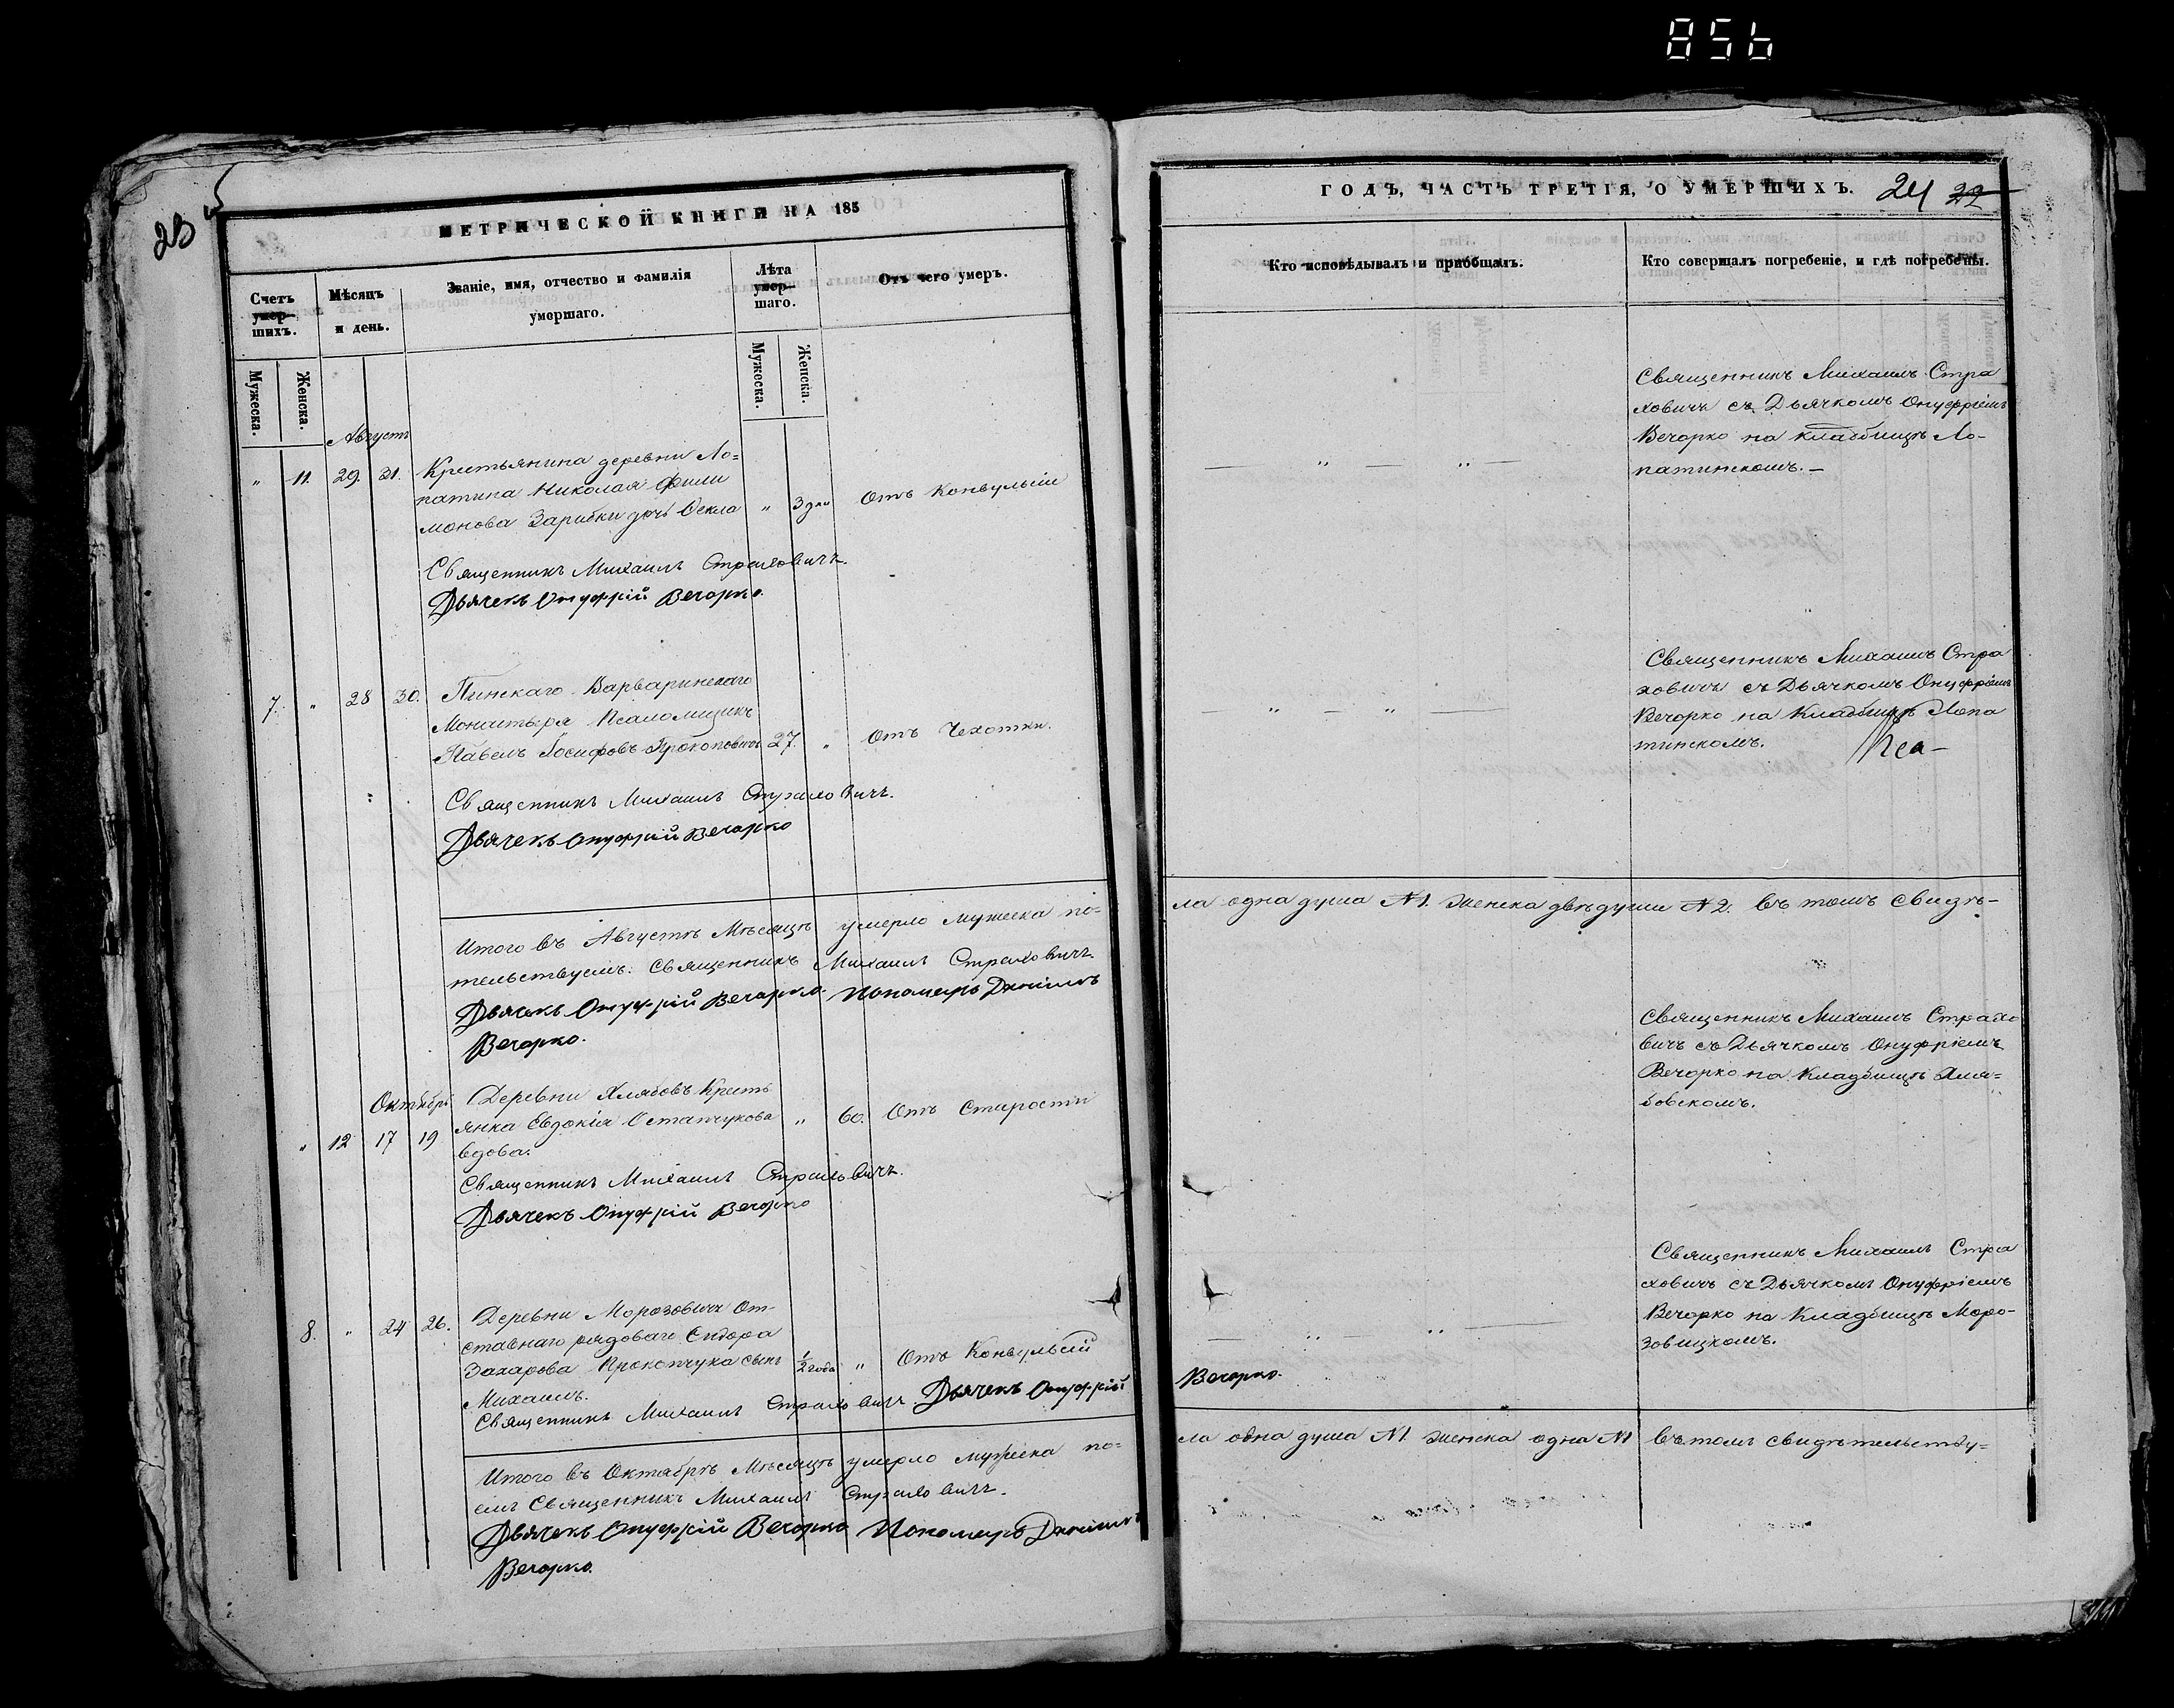 856
23
МЕТРИЧЕСКОЙ КНИГИ НА 185
Счетъ умер-шихъ.
Мѣсяцъ и день.
Званіе, имя, отчество и фамилія умершаго.
Лѣта умер-шаго.
Отъ чего умеръ.
Мужеска.
Женска.
Мужеска.
Женска.
Августъ
" 11. 29. 31. Крестьянина деревни Ло=
патина Николая Фили
монова Зарибки дочь Фекла " 3 дни Отъ Конвульсіи
Священникъ Михаилъ Страховичъ.
Дьячекъ Онуфрій Вечорко.
7. " 28 30. Пинскаго Варваринскаго
Монастыря Псаломщикъ
Павелъ Іосифовъ Прокоповичъ 27. " Отъ Чехотки.
Священникъ Михаилъ Страховичъ.
Дьячекъ Онуфрій Вечорко
Итого въ Августѣ Мѣсяцѣ умерло мужеска по-
тельствуемъ: Священникъ Михаилъ Страховичъ
Дьячекъ Онуфрій Вечорко. Пономарь Даніилъ
Вечорко.
Октябрь
Деревни Хлябовъ Кресть
" 12 17 19 янка Евдокія Остапчукова " 60. Отъ Старости
вдова.
Священникъ Михаилъ Страховичъ.
Дьячекъ Онуфрій Вечорко
8. " 24 26. Деревни Морозовичъ От-
ставнаго рядоваго Сидора
Захарова Прокопчука сынъ 1/2 года " Отъ Конвульсій
Михаилъ.
Священникъ Михаилъ Страховичъ Дьячекъ Онуфрій
Итого въ Октябрѣ Мѣсяцѣ умерло мужеска по=
емъ Священникъ Михаилъ Страховичъ.
Дьячекъ Онуфрій Вечорко Пономарь Даніилъ
Вечорко.
ГОДЪ, ЧАСТЬ ТРЕТІЯ, О УМЕРШИХЪ. 24 22
Кто исповѣдывалъ и пріобщалъ.
Кто совершалъ погребеніе, и гдѣ погребены.
Священникъ Михаилъ Стра
ховичъ съ Дьячкомъ Онуфріемъ
Вечорко на кладбищѣ Ло-
— " — " — патинскомъ.—
Священникъ Михаилъ Стра
ховичъ съ Дьячкомъ Онуфріемъ
— " — " — Вечорко на Кладбищѣ Лопа
тинскомъ.
ла одна душа №1. женска двѣ души №2. въ томъ свидѣ-
Священникъ Михаилъ Страхо
вичъ съ Дьячкомъ Онуфріемъ
Вечорко на Кладбищѣ Хля=
бовскомъ.
Священникъ Михаилъ Стра
ховичъ съ Дьячкомъ Онуфріемъ
— " " — Вечорко на Кладбищѣ Моро-
зовицкомъ.
Вечорко.
ла одна душа №1 женска одна №1 въ томъ свидѣтельству=